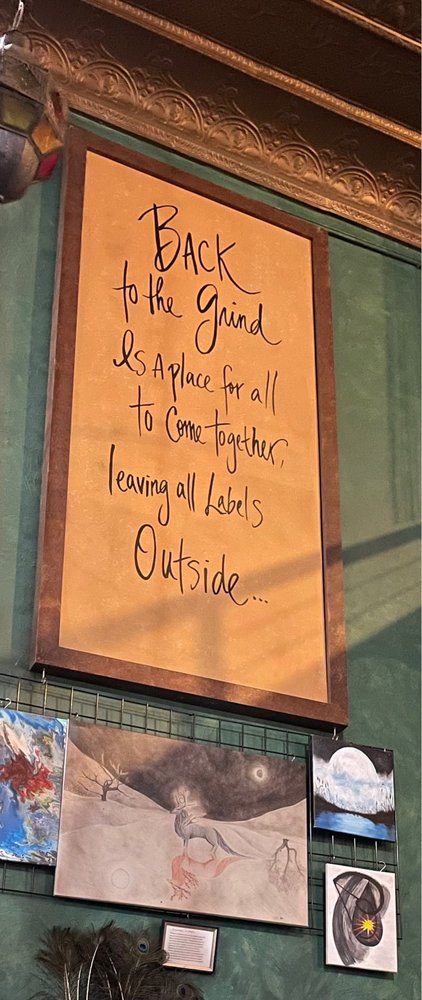 Back
to the grind
Is A place for all
to Come together,
leaving all Labels
Outside...